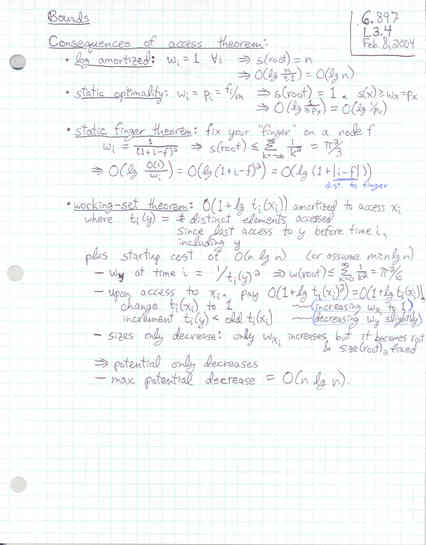 Bounds
6.897
L3.4
Feb. 8, 2004
Consequences of access theorem:
• log amortized: wᵢ = 1 ∀i ⇒ s(root) = n
⇒ O(lg n/1) = O(lg n)
• static optimality: wᵢ = pᵢ = fᵢ/m ⇒ s(root) = 1, s(x) ≥ wₓ = pₓ
⇒ O(lg 1/pₓ) = O(lg 1/pₓ)
• static finger theorem: fix your "finger" on a node f
wᵢ = 1/(1+i-f)² ⇒ s(root) ≤ Σ 1/k² = π²/3
⇒ O(lg O(1)/wᵢ) = O(lg (1+i-f)²) = O(lg (1+|i-f|))
dist. to finger
• working-set theorem: O(1 + lg tᵢ(xᵢ)) amortized to access xᵢ
where tᵢ(y) = # distinct elements accessed
since last access to y before time i,
including y
plus startup cost of O(n lg n) (or assume m ≥ n lg n)
- w_y at time i = 1/tᵢ(y)² ⇒ w(root) ≤ Σ 1/k² = π²/6
- upon access to xᵢ, pay O(1+lg tᵢ(xᵢ)²) = O(1+lg tᵢ(xᵢ))
change tᵢ(xᵢ) to 1 (increasing wₓ to 1)
increment tᵢ(y) < old tᵢ(xᵢ) (decreasing w_y slightly)
- sizes only decrease: only wₓᵢ increases, but it becomes root
& size(root) fixed
⇒ potential only decreases
- max potential decrease = O(n lg n).